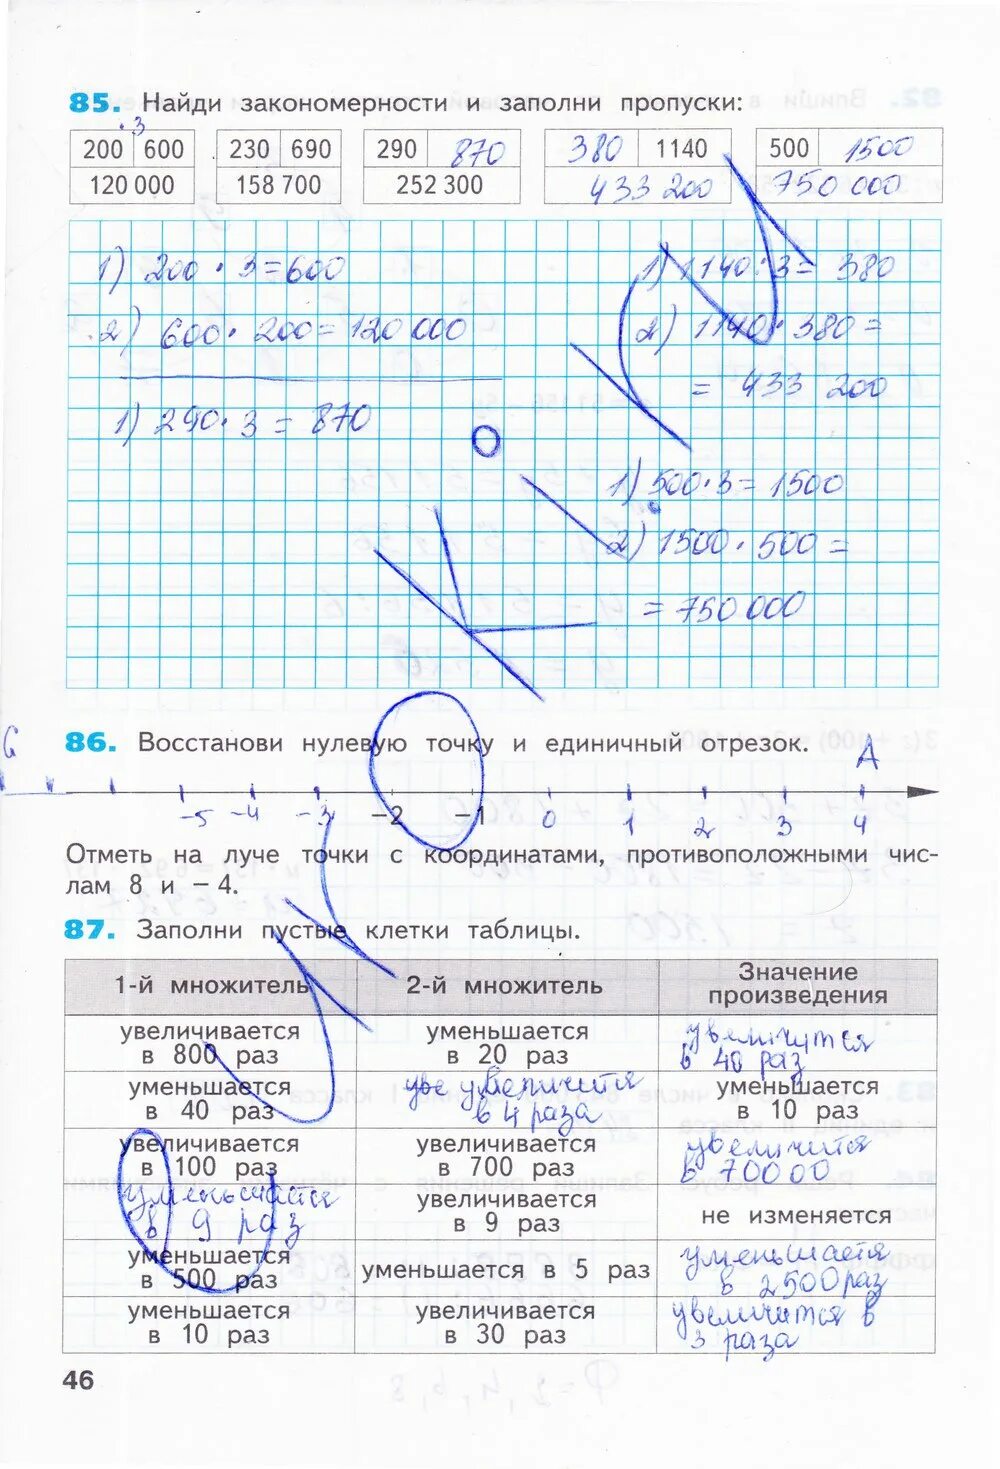 85. Найди закономерности и заполни пропуски:
· 3
200 600 230 690 290 870 380 1140 500 1500
120 000 158 700 252 300 433 200 750 000
1) 200 · 3 = 600
2) 600 · 200 = 120 000
1) 290 · 3 = 870
1) 1140 : 3 = 380
2) 1140 · 380 =
= 433 200
1) 500 · 3 = 1500
2) 1500 · 500 =
= 750 000
86. Восстанови нулевую точку и единичный отрезок.
A
-5 -4 -3 -2 -1 0 1 2 3 4
Отметь на луче точки с координатами, противоположными чис-
лам 8 и - 4.
87. Заполни пустые клетки таблицы.
1-й множитель 2-й множитель Значение
произведения
увеличивается
в 800 раз
уменьшается
в 20 раз
увеличится
в 40 раз
уменьшается
в 40 раз
уве увеличится
в 4 раза
уменьшается
в 10 раз
увеличивается
в 100 раз
увеличивается
в 700 раз
увеличится
в 70000
уменьшается
в 9 раз
увеличивается
в 9 раз
не изменяется
уменьшается
в 500 раз
уменьшается в 5 раз
уменьшается
в 2500 раз
уменьшается
в 10 раз
увеличивается
в 30 раз
увеличится в
3 раза
46